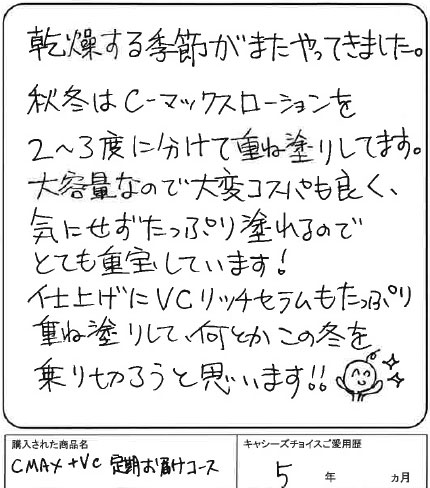 乾燥する季節がまたやってきました。
秋冬はC-マックスローションを
2〜3度に分けて重ね塗りしてます。
大容量なので大変コスパも良く、
気にせずたっぷり塗れるので
とても重宝しています!
仕上げにVCリッチセラムもたっぷり
重ね塗りして、何とかこの冬を
乗り切ろうと思います!!
購入された商品名
CMAX+VC 定期お届けコース
キャシーズチョイスご愛用歴
5 年 ヵ月